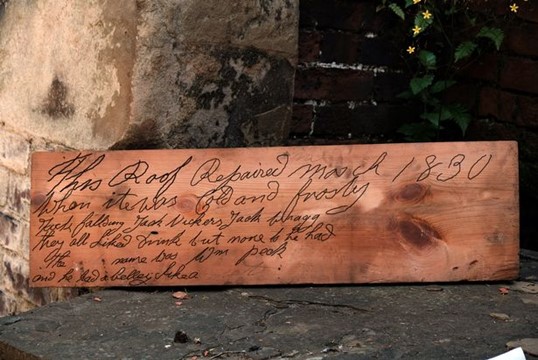 This Roof Repaired March 1830
When it was Cold and frosty
Jack Vickers Jack
they all Liked Drink but none to be had
the name was Wm peck
and he had a belley like a